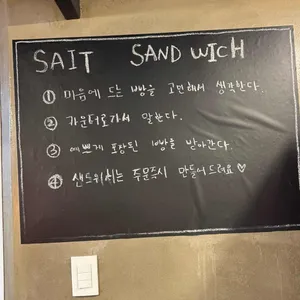 SAIT SANDWICH
① 마음에 드는 빵을 고민해서 생각한다.
② 카운터로가서 말한다.
③ 예쁘게 포장된 빵을 받아간다.
④ 샌드위치는 주문즉시 만들어드려요♡